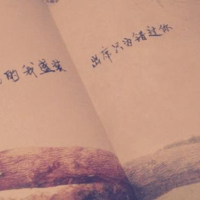 的我盛装
出席只为错过你